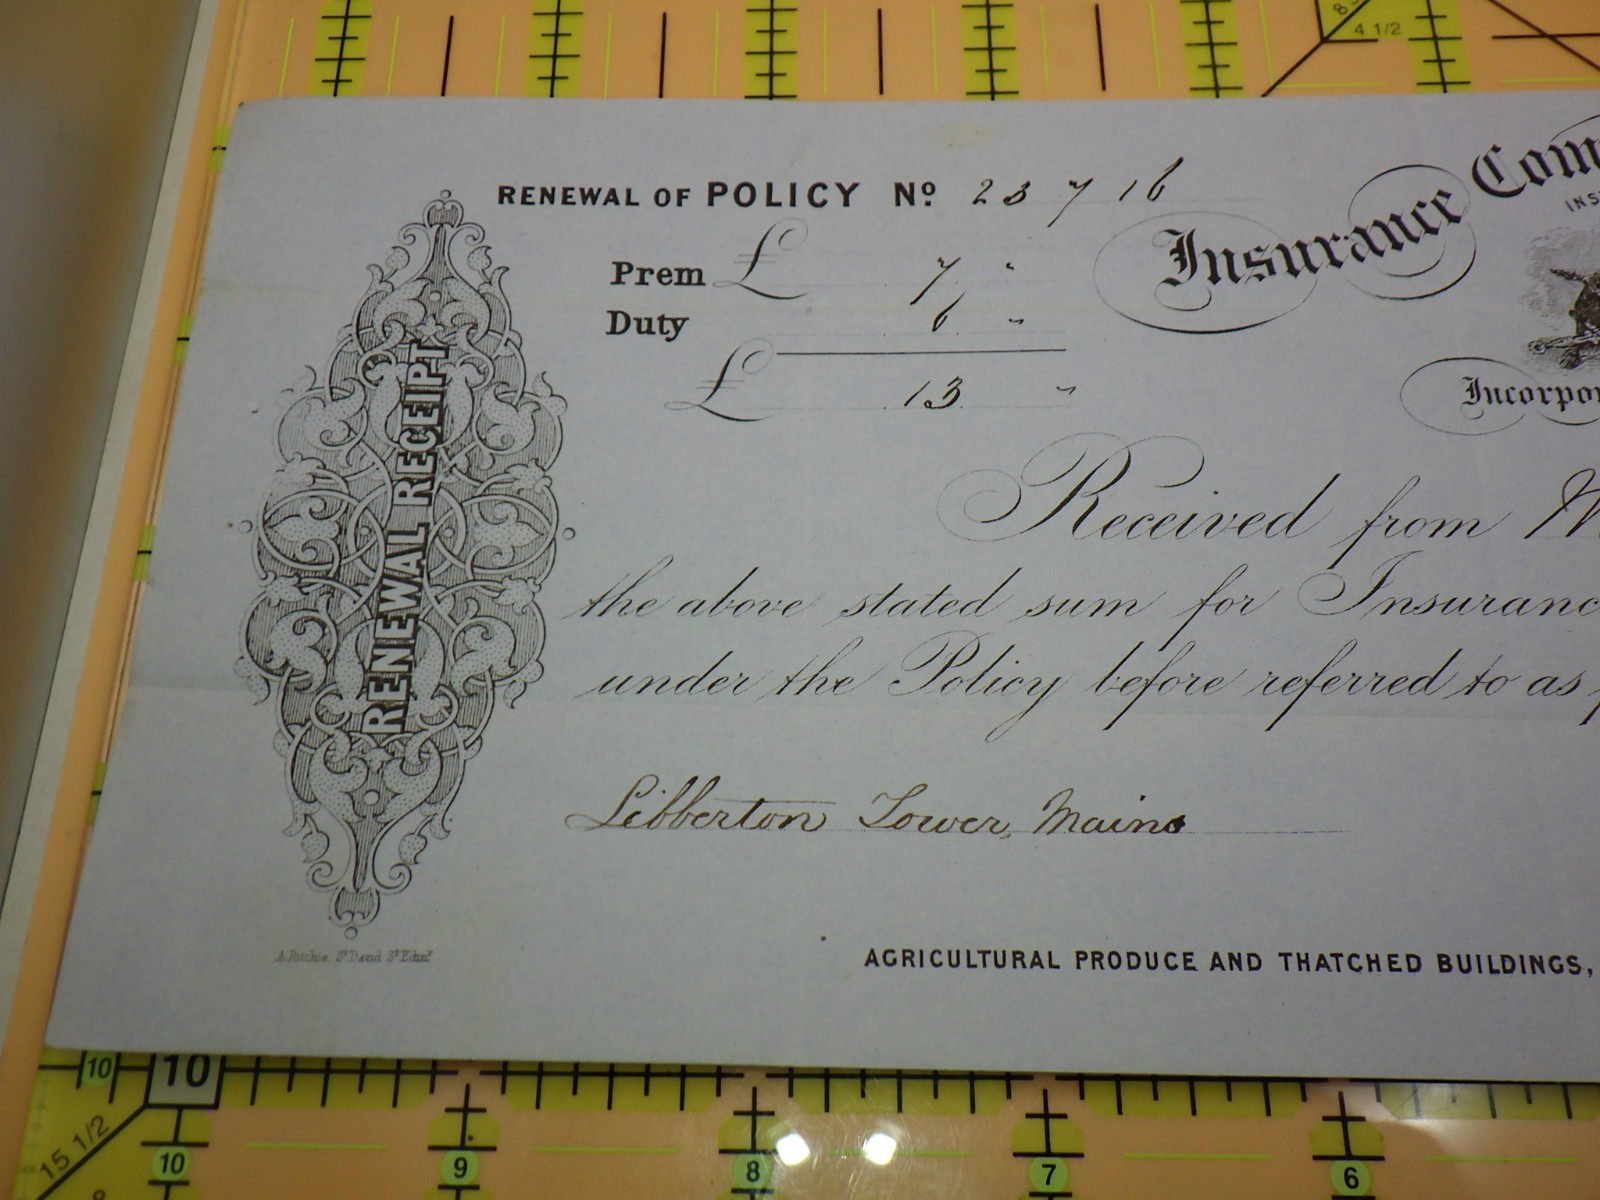 8
4 1/2
RENEWAL OF POLICY No. 23716
Insurance Com
INS
Prem £ 7 "
Duty 6 "
£ 13 "
Incorpo
RENEWAL RECEIPT
Received from M
the above stated sum for Insuranc
under the Policy before referred to as
Libberton Tower, Mains
A. Ritchie, St. David St. Edinr.
AGRICULTURAL PRODUCE AND THATCHED BUILDINGS,
10 10
15 1/2
10 9 8 7 6